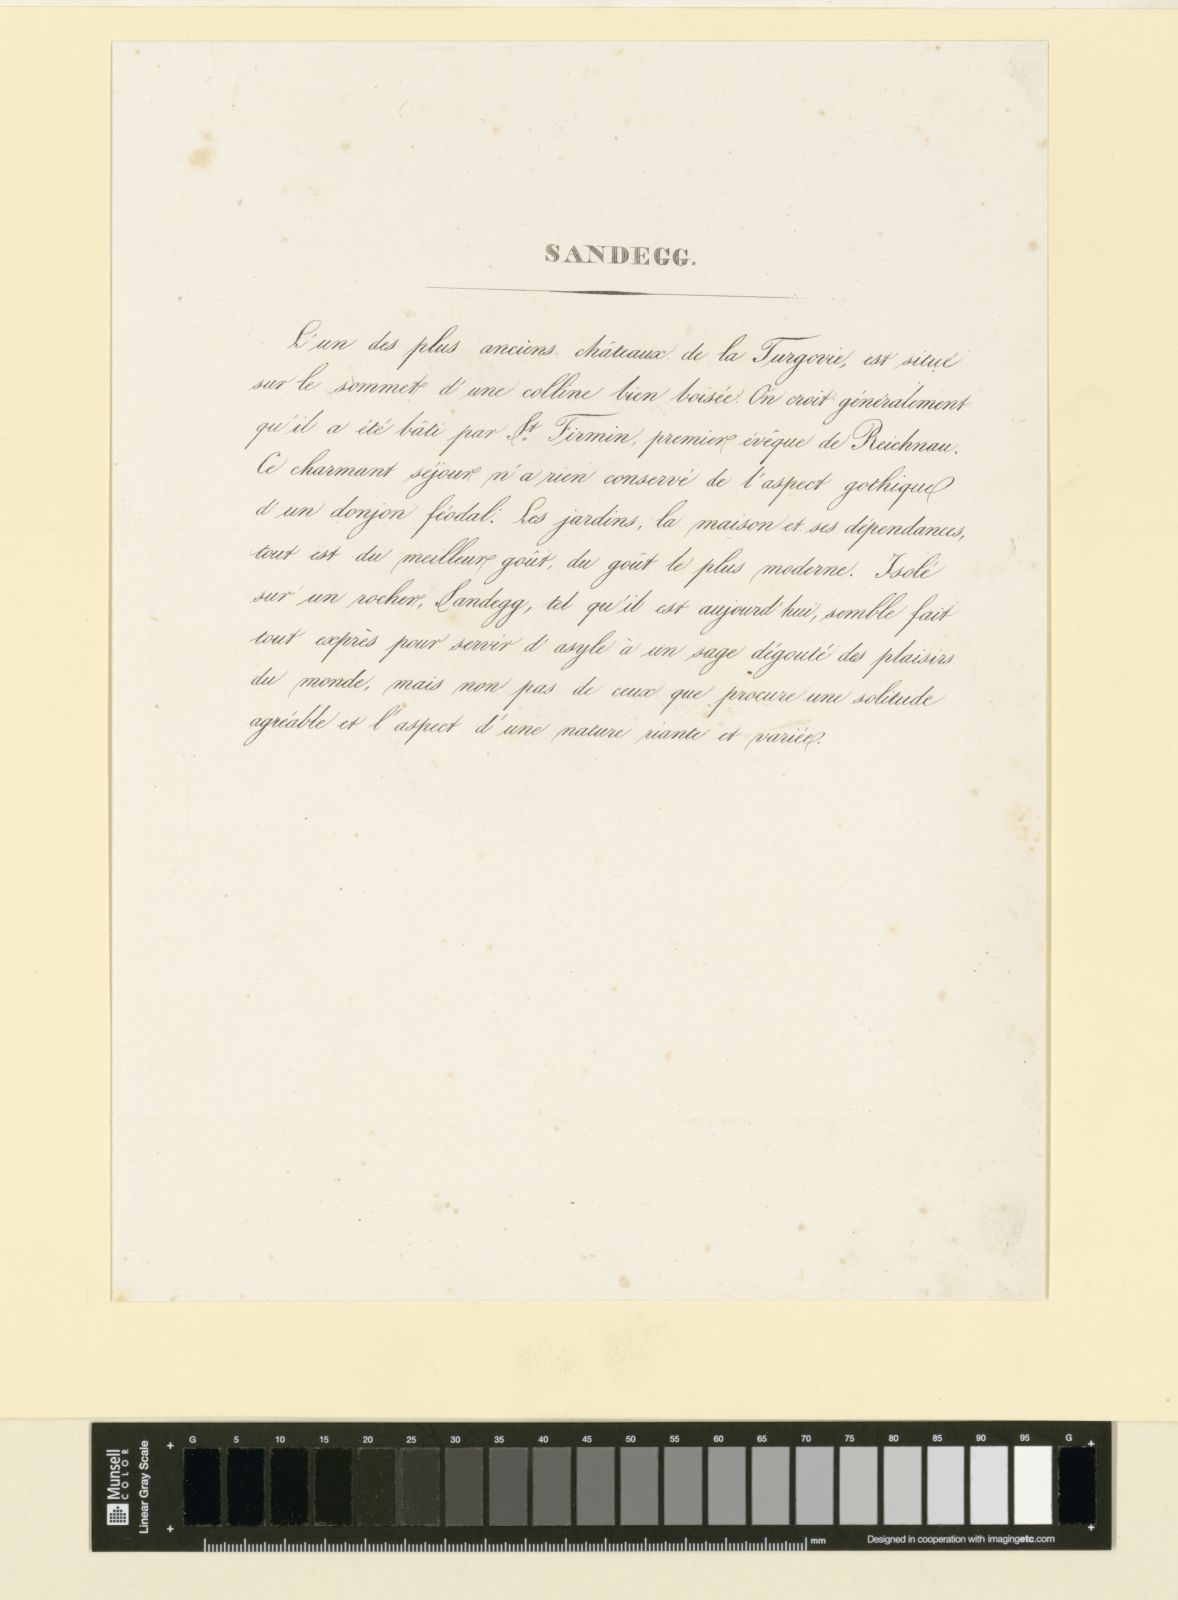 SANDEGG.
L'un des plus anciens châteaux de la Turgovie, est situé
sur le sommet d'une colline bien boisée. On croit généralement
qu'il a été bâti par St. Firmin, premier évêque de Reichnau.
Ce charmant séjour n'a rien conservé de l'aspect gothique
d'un donjon féodal. Les jardins, la maison et ses dépendances,
tout est du meilleur goût, du goût le plus moderne. Isolé
sur un rocher, Sandegg, tel qu'il est aujourd'hui, semble fait
tout exprès pour servir d'asyle à un sage dégouté des plaisirs
du monde, mais non pas de ceux que procure une solitude
agréable et l'aspect d'une nature riante et variée.
Munsell
COLOR
Linear Gray Scale
G 5 10 15 20 25 30 35 40 45 50 55 60 65 70 75 80 85 90 95 G
mm
Designed in cooperation with imagingetc.com